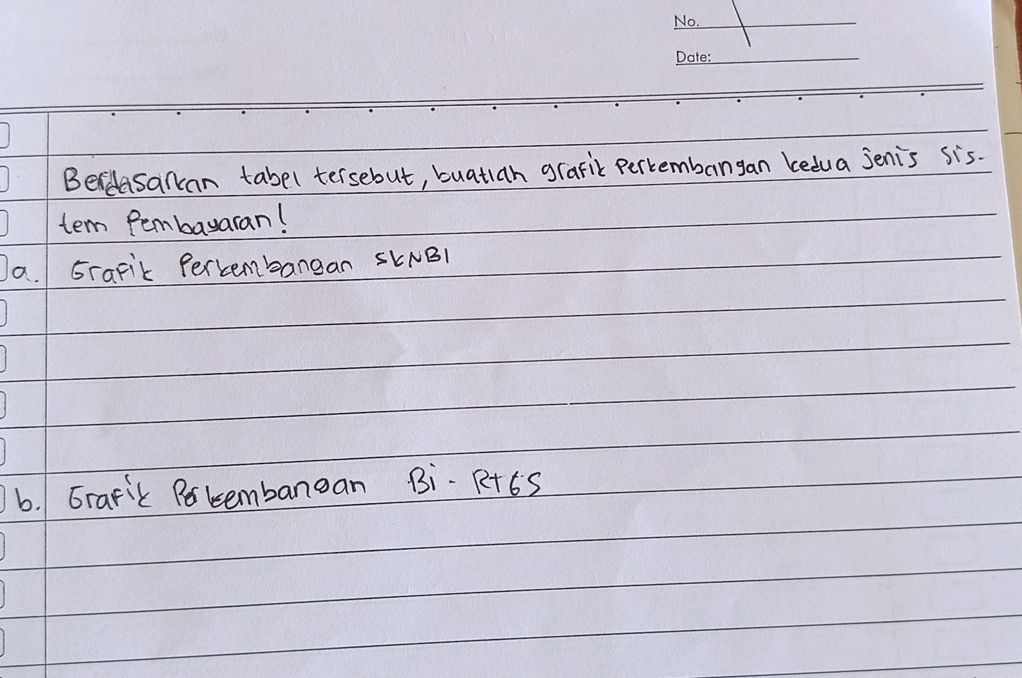 No.
Date:
Berdasarkan tabel tersebut, buatlah grafik perkembangan kedua jenis sis-
tem Pembayaran!
a. Grafik Perkembangan SKNBI
b. Grafik Perkembangan Bi - RTGS